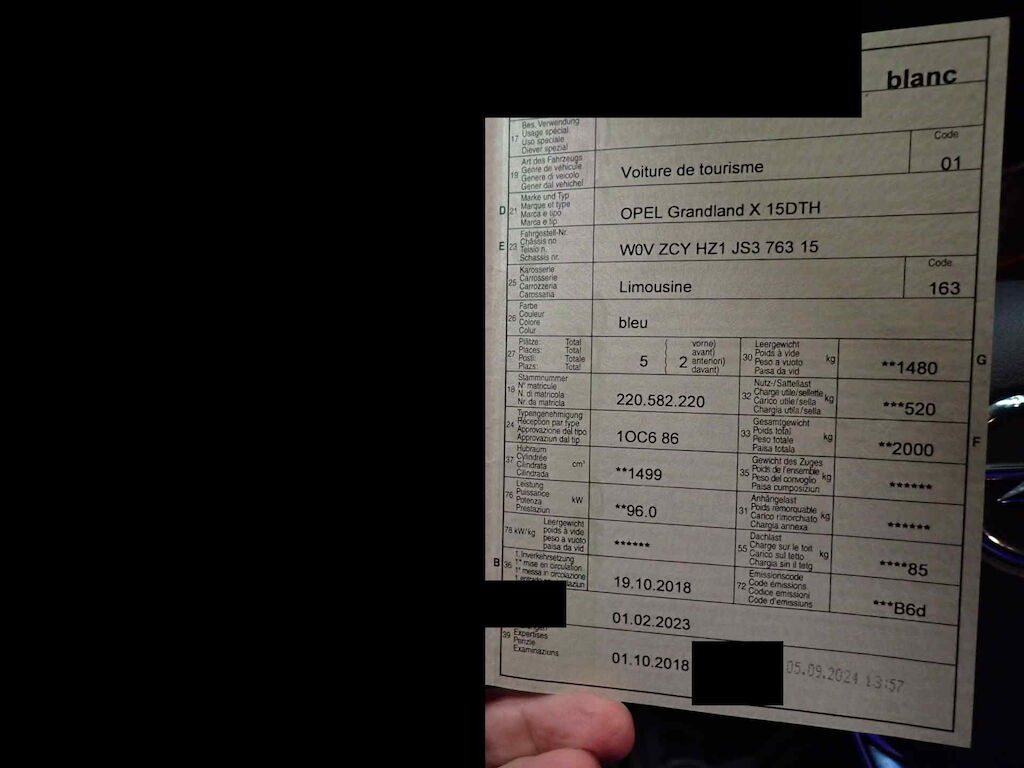 blanc
17 Bes. Verwendung
Usage spécial
Uso speciale
Diever spezial
19 Art des Fahrzeugs
Genre de véhicule
Genere di veicolo
Gener dal vehichel
Voiture de tourisme
Code
01
D 21 Marke und Typ
Marque et type
Marca e tipo
Marca e tip
OPEL Grandland X 15DTH
E 23 Fahrgestell-Nr.
Châssis no
Telaio n.
Schassis nr.
W0V ZCY HZ1 JS3 763 15
25 Karosserie
Carrosserie
Carrozzeria
Carossaria
Limousine
Code
163
26 Farbe
Couleur
Colore
Colur
bleu
27 Plätze: Total
Places: Total
Posti: Totale
Plazs: Total
5 ( 2 vorne)
avant)
anteriori)
davant)
30 Leergewicht
Poids à vide
Peso a vuoto
Paisa da vid
kg
**1480
G
18 Stammnummer
N° matricule
N. di matricola
Nr. da matricla
220.582.220
32 Nutz-/Sattellast
Charge utile/sellette kg
Carico utile/sella
Chargia utila/sella
***520
24 Typengenehmigung
Réception par type
Approvazione del tipo
Approvaziun dal tip
1OC6 86
33 Gesamtgewicht
Poids total
Peso totale
Paisa totala
kg
**2000
F
37 Hubraum
Cylindrée
Cilindrata
Cilindrada
cm³
**1499
35 Gewicht des Zuges
Poids de l'ensemble
Peso del convoglio kg
Paisa cumposiziun
******
76 Leistung
Puissance
Potenza
Prestaziun
kW
**96.0
31 Anhängelast
Poids remorquable
Carico rimorchiato kg
Chargia annexa
******
78 kW/kg Leergewicht
poids à vide
peso a vuoto
paisa da vid
******
55 Dachlast
Charge sur le toit
Carico sul tetto
Chargia sin il tetg
kg
****85
B 36 1. Inverkehrsetzung
1re mise en circulation
1a messa in circolazione
19.10.2018
72 Emissionscode
Code émissions
Codice emissioni
Code d'emissiuns
***B6d
01.02.2023
39 Expertises
Perizie
Examinaziuns
01.10.2018
05.09.2024 13:57